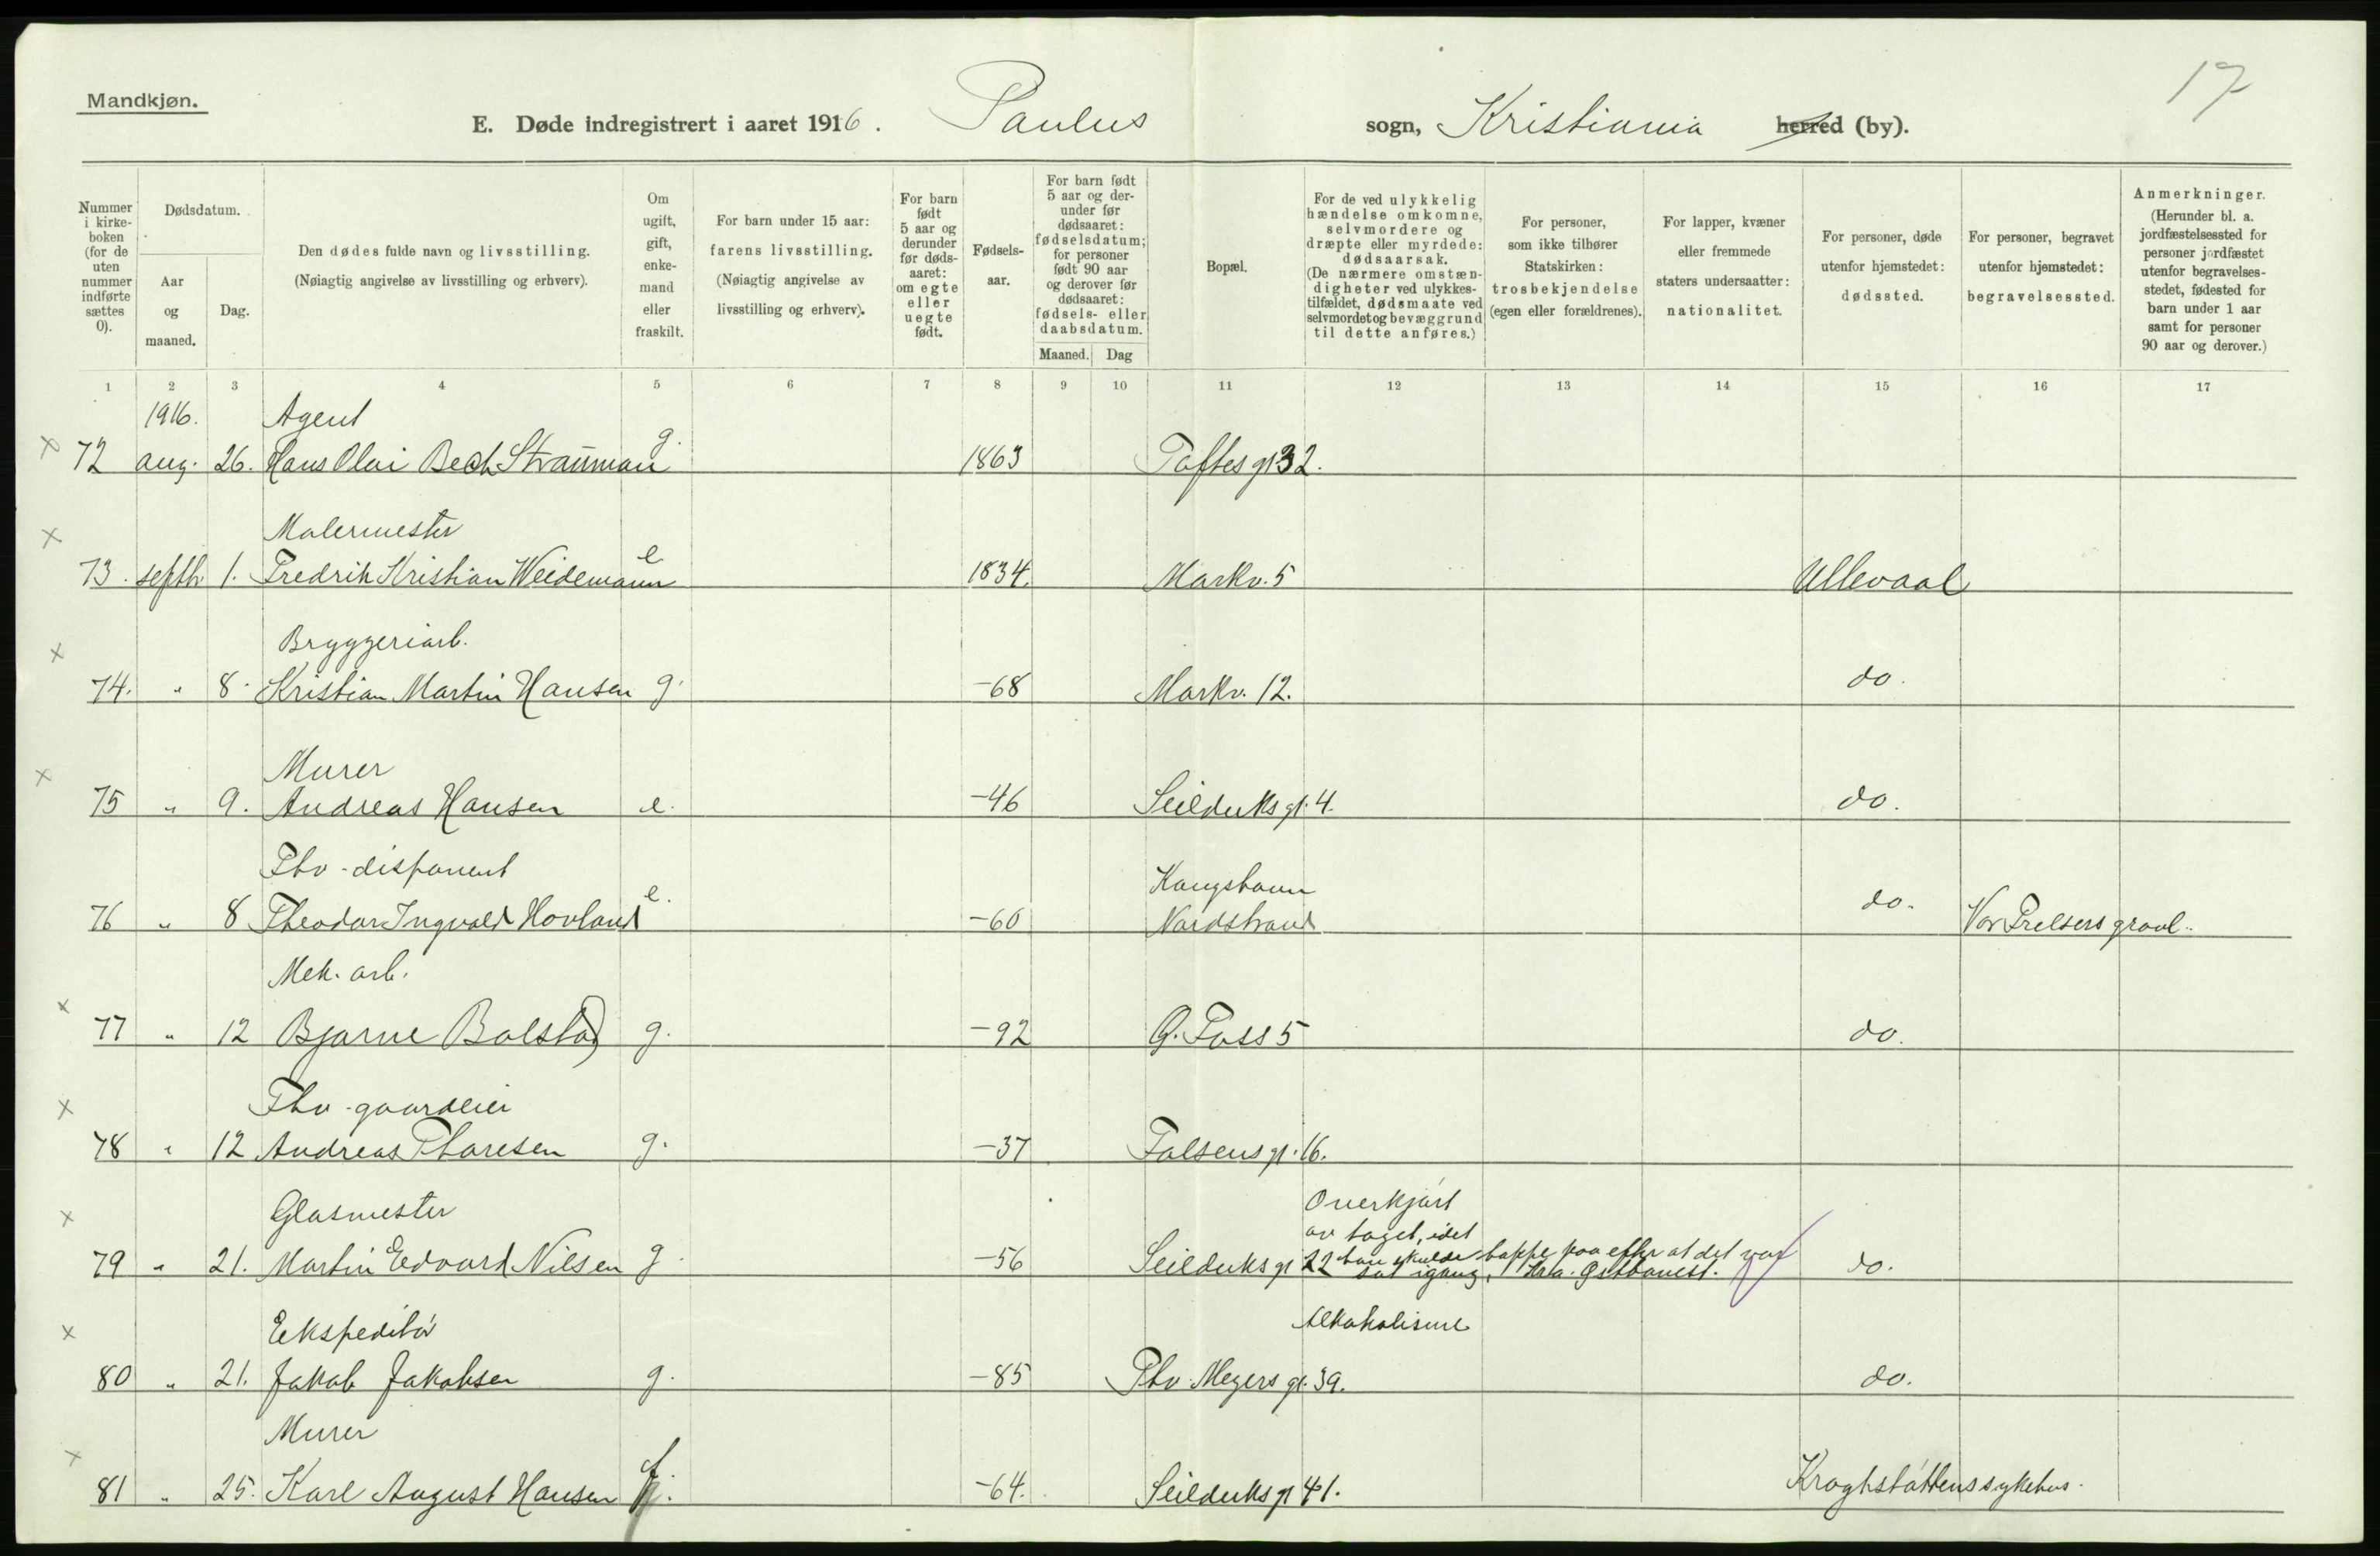 17
Mandkjøn.
E. Døde indregistrert i aaret 1916. Paulus sogn, Kristiania herred (by).
Nummer i kirke-boken (for de uten nummer indførte sættes 0).
Dødsdatum.
Aar og maaned.
Dag.
Den dødes fulde navn og livsstilling.
(Nøiagtig angivelse av livsstilling og erhverv).
Om ugift, gift, enke-mand eller fraskilt.
For barn under 15 aar: farens livsstilling.
(Nøiagtig angivelse av livsstilling og erhverv).
For barn født 5 aar og derunder før døds-aaret: om egte eller uegte født.
Fødsels-aar.
For barn født 5 aar og der-under før dødsaaret: fødselsdatum; for personer født 90 aar og derover før dødsaaret: fødsels- eller daabsdatum.
Maaned. Dag
Bopæl.
For de ved ulykkelig hændelse omkomne, selvmordere og dræpte eller myrdede: dødsaarsak.
(De nærmere omstæn-digheter ved ulykkes-tilfældet, dødsmaate ved selvmordet og bevæggrund til dette anføres.)
For personer, som ikke tilhører Statskirken: trosbekjendelse (egen eller forældrenes).
For lapper, kvæner eller fremmede staters undersaatter: nationalitet.
For personer, døde utenfor hjemstedet: dødssted.
For personer, begravet utenfor hjemstedet: begravelsessted.
Anmerkninger.
(Herunder bl. a. jordfæstelsessted for personer jordfæstet utenfor begravelses-stedet, fødested for barn under 1 aar samt for personer 90 aar og derover.)
1 2 3 4 5 6 7 8 9 10 11 12 13 14 15 16 17
1916. Agent
72 aug. 26. Hans Olai Bech Strauman g. 1863 Toftes gt 32.
Malermester
73. septbr 1. Fredrik Kristian Weidemann e 1834. Markv. 5 Ullevaal
Bryggeriarb.
74. " 8. Kristian Martin Hansen g. -68 Markv. 12. do.
Murer
75 " 9. Andreas Hansen e. -46 Seilduksgt. 4. do.
Fhv. disponent Kongshavn
76 " 8 Theodor Ingvald Hovland e. -60 Nordstrand do. Vor Frelsers gravl.
Mek. arb.
77 " 12 Bjarne Bolstad g. -92 G. Foss 5 do.
Fhv. gaardeier
78 " 12 Andreas Thoresen g. -37 Falsens gt. 16.
Glasmester Overkjørt
av toget, idet
79 " 21. Martin Edvard Nilsen g -56 Seilduksgt 22 han skulde hoppe paa efter at det var do.
sat igang, Kra. Østbanest.
Ekspeditør Alkoholisme
80 " 21. Jakob Jakobsen g. -85 Thv. Meyers gt. 39. do.
Murer
81 " 25. Karl August Hansen f. -64. Seilduksgt 41. Kroghstøttens sykehus.